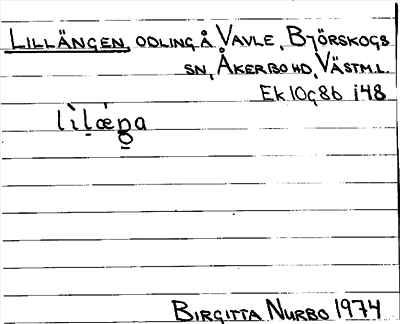 LILLÄNGEN, ODLING Å VAVLE, BJÖRSKOGS
SN, ÅKERBO HD, VÄSTML.
EK 10G8b i48
BIRGITTA NURBO 1974